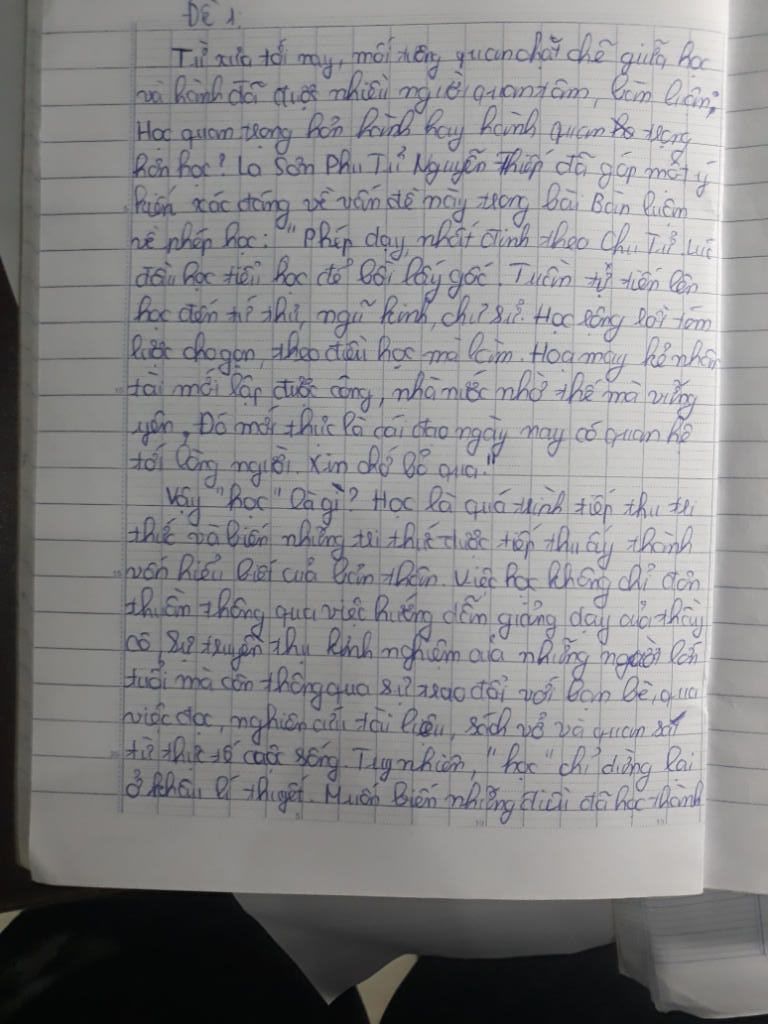 Đề 1.
Từ xưa tới nay, mối tương quan chặt chẽ giữa học
và hành đã được nhiều người quan tâm, bàn luận,
Học quan trọng hơn hành hay hành quan trọng
hơn học? La Sơn Phu Tử Nguyễn Thiếp đã góp một ý
kiến xác đáng về vấn đề này trong bài Bàn luận
về phép học: "Phép dạy nhất định theo Chu Tử. Lúc
đầu học tiểu học để bồi lấy gốc. Tuần tự tiến lên
học đến tứ thư, ngũ kinh, chư sử. Học rộng rồi tóm
lược cho gọn, theo điều học mà làm. Hoạ may kẻ nhân
tài mới lập được công, nhà nước nhờ thế mà vững
yên, Đó mới thực là cái đạo ngày nay có quan hệ
tới lòng người. Xin chớ bỏ qua."
Vậy "học" là gì? Học là quá trình tiếp thu tri
thức và biến những tri thức được tiếp thu ấy thành
vốn hiểu biết của bản thân. Việc học không chỉ đơn
thuần thông qua việc hướng dẫn giảng dạy của thầy
cô, sự truyền thụ kinh nghiệm của những người lớn
tuổi mà còn thông qua sự trao đổi với bạn bè, qua
việc đọc, nghiên cứu tài liệu, sách vở và quan sát
từ thực tế cuộc sống. Tuy nhiên, "học" chỉ dừng lại
ở khâu lí thuyết. Muốn biến những điều đã học thành